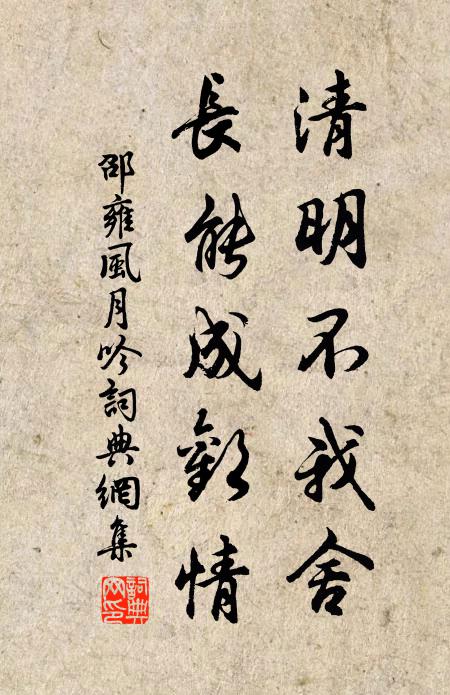 清明不我舍
長能成歡情
邵雍風月吟詞典網集
詞典网印